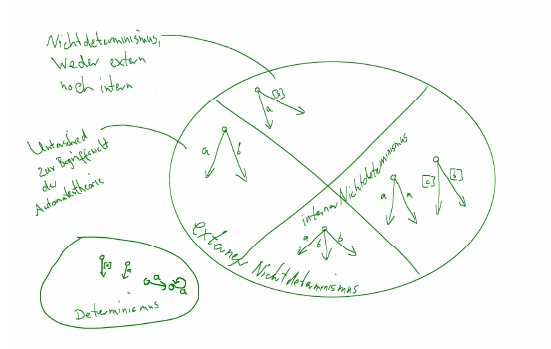 Nichtdeterminismus,
Weder extern
noch intern
a [b]
a b
Unterschied
zur Begriffswelt
der
Automatentheorie
interner Nichtdeterminismus
a a [a] [b]
externer Nichtdeterminismus
a b b
a a
a
Determinismus